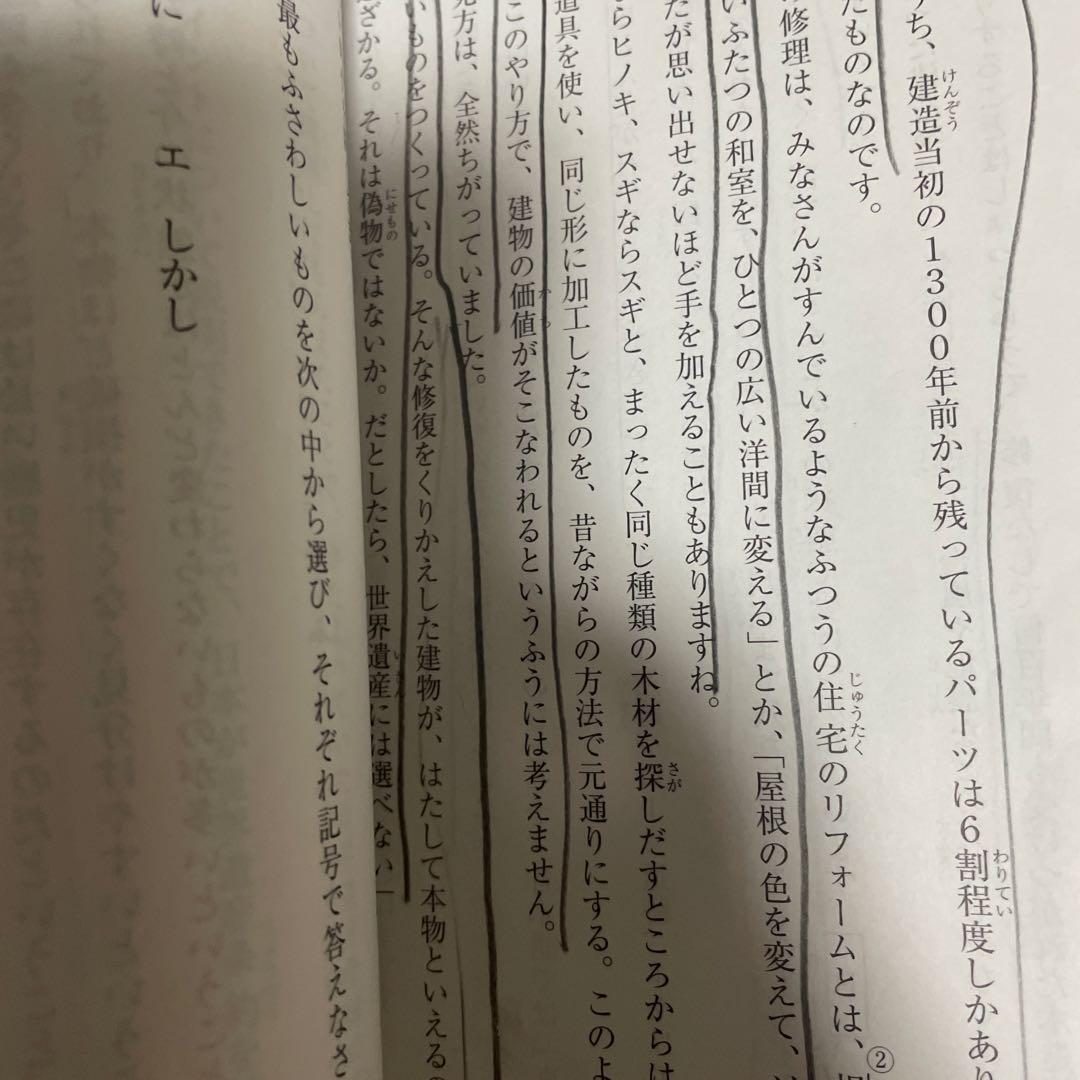 うち、建造当初の1300年前から残っているパーツは6割程度しかあり
たものなのです。
修理は、みなさんがすんでいるようなふつうの住宅のリフォームとは、
いふたつの和室を、ひとつの広い洋間に変える」とか、「屋根の色を変えて、
たが思い出せないほど手を加えることもありますね。
らヒノキ、スギならスギと、まったく同じ種類の木材を探しだすところからは
道具を使い、同じ形に加工したものを、昔ながらの方法で元通りにする。このよ
このやり方で、建物の価値がそこなわれるというふうには考えません。
見方は、全然ちがっていました。
いものをつくっている。そんな修復をくりかえした建物が、はたして本物といえるの
ざかる。それは偽物ではないか。だとしたら、世界遺産には選べない」
最もふさわしいものを次の中から選び、それぞれ記号で答えなさ
エ しかし
に